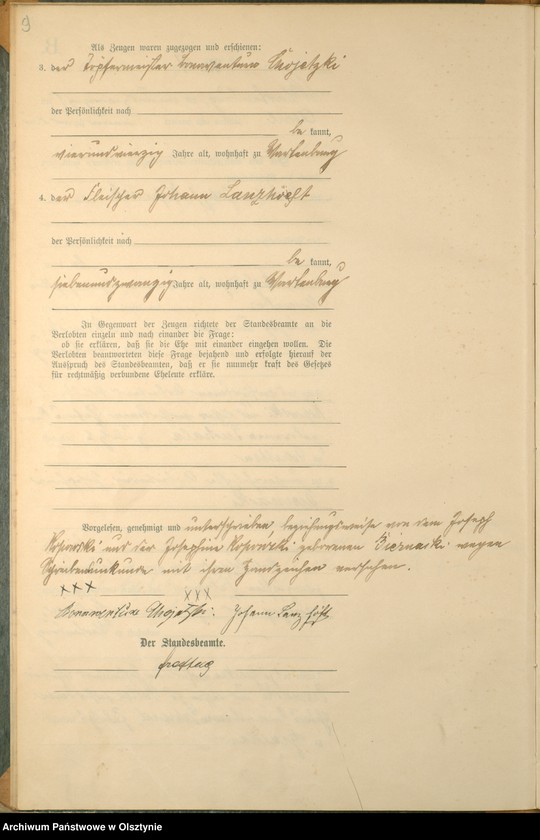 9
Als Zeugen waren zugezogen und erschienen:
3. der Töpfermeister Bonaventura Chojetzki
der Persönlichkeit nach
be kannt,
vierundvierzig Jahre alt, wohnhaft zu Wartenburg
4. der Fleischer Johann Lanzhöft
der Persönlichkeit nach
be kannt,
siebenundzwanzig Jahre alt, wohnhaft zu Wartenburg
In Gegenwart der Zeugen richtete der Standesbeamte an die
Verlobten einzeln und nach einander die Frage:
ob sie erklären, daß sie die Ehe mit einander eingehen wollen. Die
Verlobten beantworteten diese Frage bejahend und erfolgte hierauf der
Ausspruch des Standesbeamten, daß er sie nunmehr kraft des Gesetzes
für rechtmäßig verbundene Eheleute erkläre.
Vorgelesen, genehmigt und unterschrieben beziehungsweise von dem Joseph
und der Josephine geborenen wegen
Schreibensunkunde mit ihren Handzeichen versehen.
xxx xxx
Bonaventura Chojetzki. Johann Lanzhöft
Der Standesbeamte.
Archiwum Państwowe w Olsztynie